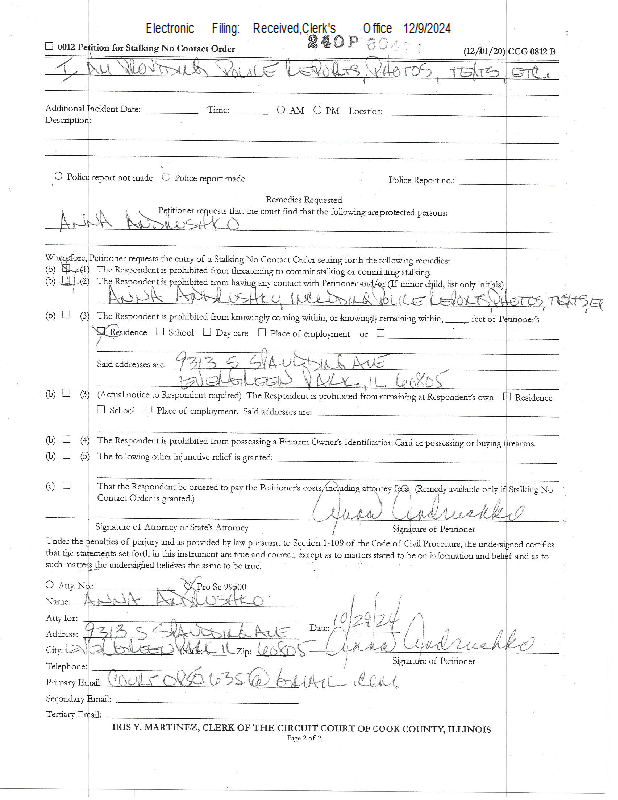 Electronic Filing: Received,Clerk's Office 12/9/2024
☐ 0012 Petition for Stalking No Contact Order
240P
(12/01/20) CCG 0812 B
I AM PROVIDING POLICE REPORTS, PHOTOS, TEXTS, ETC.
Additional Incident Date: Time: ○ AM ○ PM Location:
Description:
○ Police report not made ○ Police report made Police Report no.:
Remedies Requested
Petitioner requests that the court find that the following are protected persons:
ANNA ANDRUSHKO
Wherefore, Petitioner requests the entry of a Stalking No Contact Order setting forth the following remedies:
(b) (1) The Respondent is prohibited from threatening to commit stalking or committing stalking.
(b) (2) The Respondent is prohibited from having any contact with Petitioner and/or (If minor child, list only initials)
ANNA ANDRUSHKO, INCLUDING POLICE REPORTS, PHOTOS, TEXTS, E
(b) ☐ (3) The Respondent is prohibited from knowingly coming within, or knowingly remaining within, feet of Petitioner's
Residence ☐ School ☐ Day care ☐ Place of employment or ☐
Said addresses are: 9313 S SPAULDING AVE
EVERGREEN PARK, IL 60805
(b) ☐ (3) (Actual notice to Respondent required) The Respondent is prohibited from remaining at Respondent's own ☐ Residence
☐ School Place of employment. Said addresses are:
(b) (4) The Respondent is prohibited from possessing a Firearm Owner's Identification Card or possessing or buying firearms.
(b) (5) The following other injunctive relief is granted:
(c) That the Respondent be ordered to pay the Petitioner's costs, including attorney fees. (Remedy available only if Stalking No
Contact Order is granted.)
Anna Andrushko
Signature of Attorney or State's Attorney Signature of Petitioner
Under the penalties of perjury and as provided by law pursuant to Section 1-109 of the Code of Civil Procedure, the undersigned certifies
that the statements set forth in this instrument are true and correct, except as to matters stated to be on information and belief and as to
such matters the undersigned believes the same to be true.
○ Atty. No.: Pro Se 99500
Name: ANNA ANDRUSHKO
Atty for:
Address: 9313 S SPAULDING AVE Date: 10/29/24 Anna Andrushko
City: EVERGREEN PARK IL Zip: 60805
Signature of Petitioner
Telephone:
Primary Email:
Secondary Email:
Tertiary Email:
IRIS Y. MARTINEZ, CLERK OF THE CIRCUIT COURT OF COOK COUNTY, ILLINOIS
Page 2 of 2